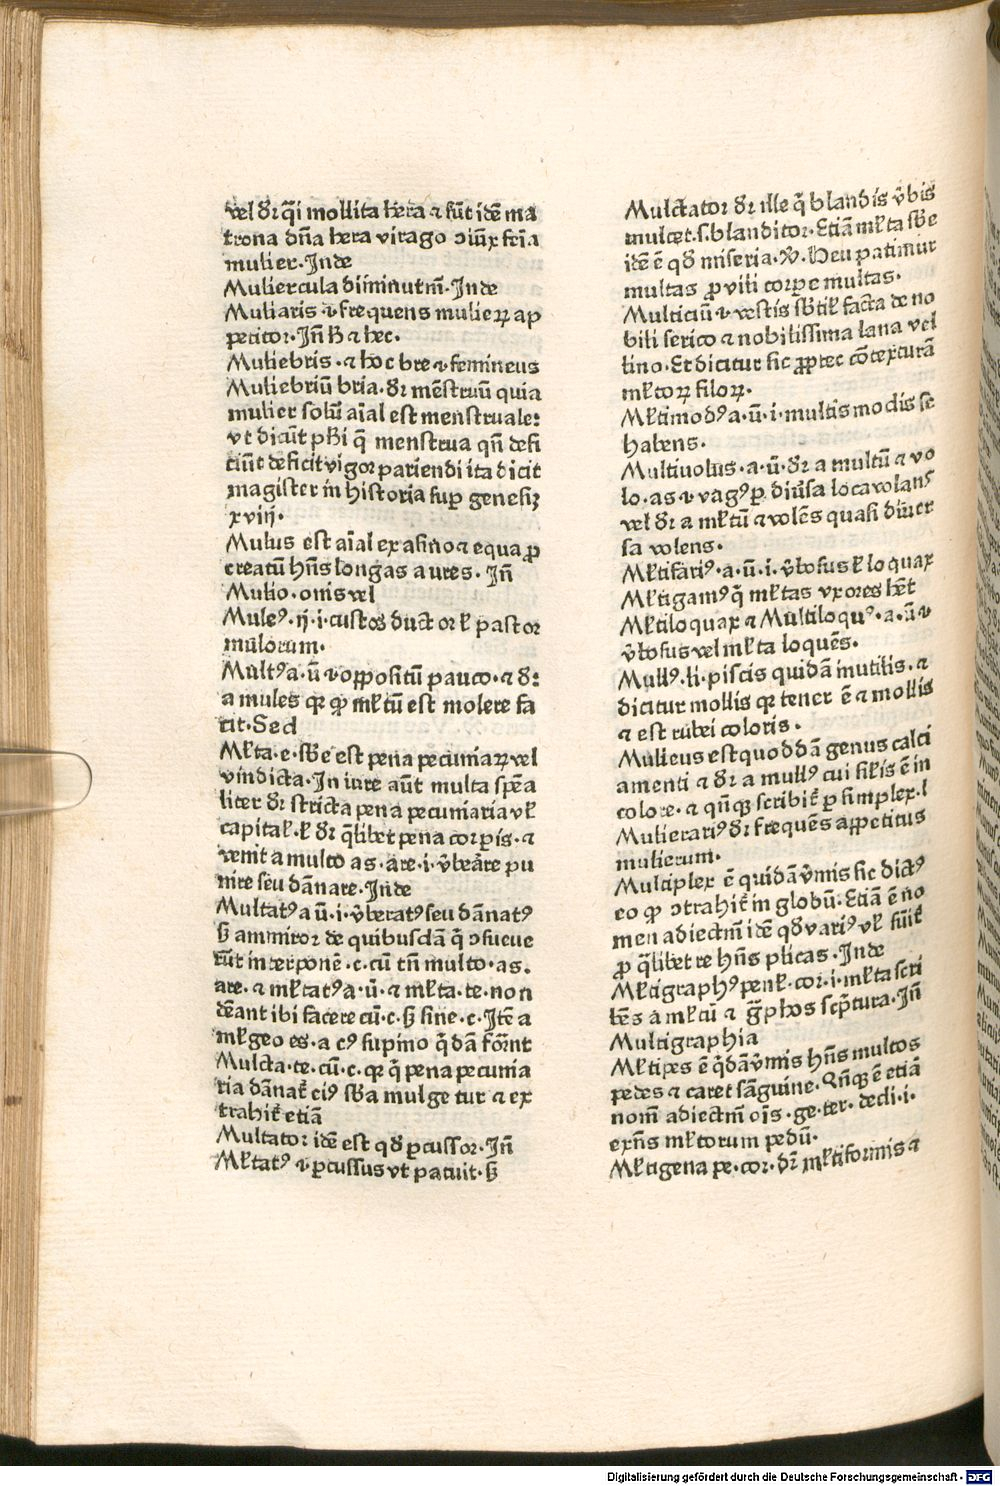 vel dr̄ q̄si mollita hera ⁊ sūt idē ma
trona dn̄a hera virago ↄiūx fēīa
mulier. Inde
Muliercula diminutm̄. Inde
Muliaris .i. frequens mulieꝝ ap
petitor. Iñ h̄ ⁊ hec.
Muliebris. ⁊ hoc bre .i. femineus
Muliebriū bria. dr̄ mēstruū quia
mulier solū aīal est menstruale:
vt dicūt phī q̄ menstrua qn̄ defi
ciūt deficit vigor pariendi ita dicit
magister in historia sup̄ genesiꝫ
xviij.
Mulus est aīal ex asino ⁊ equa ꝓ
creatū hn̄s longas aures. Iñ
Mulio. onis vel
Muleꝰ. ij. i. custos ductor ł pastor
mulorum.
Multꝰ a. ū .i. oppositū pauco. ⁊ dr̄:
a mules qꝛ ꝙ mł̄tū est molere fa
cit. Sed
Mł̄ta. e. sb̄e est pena pecuniaꝝ vel
vindicta. In iure aūt multa spēa
liter dr̄ stricta pena pecuniaria vł
capitał. ł dr̄ q̄libet pena corꝑis. ⁊
venit a multo as. are. i. v̄beāre pu
nire seu dānare. Inde
Multatꝰ a ū. i. v̄beratꝰ seu dānatꝰ
s̄ ammiror de quibusdā q̄ ↄsueue
rūt interponē .c. cū tn̄ multo. as.
are. ⁊ mł̄tatꝰ a. ū. ⁊ mł̄ta. te. non
dēant ibi facere cū .c. s̄ sine .c. Itē a
mł̄geo es. a cꝰ supino q̄dā fōrnt
Mulcta. te. cū .c. qꝛ q̄ pena pecunia
ria dānat̄ eiꝰ sb̄a mulgetur ⁊ ex
trahit̄ etiā
Multator idē est qd̄ ꝑcussor. Iñ
Mł̄tatꝰ .i. ꝑcussus vt patuit. s̄
Mulctator dr̄ ille q̄ blandis v̄bis
mulcet. s. blanditor. Etiā mł̄ta sb̄e
idē ē qd̄ miseria. v̄. Heu patimur
multas ꝓ vili corpe multas.
Multiciū .i. vestis sb̄til̄ facta de no
bili serico ⁊ nobilissima lana vel
lino. Et dicitur sic ꝓpter cōtexturā
mł̄toꝝ filoꝝ.
Mł̄timodꝰ a. ū. i. multis modis se
habens.
Multiuolus. a. ū. dr̄ a multū ⁊ vo
lo. as .i. vagꝰ ꝑ diūsa loca volanˢ
vel dr̄ a mł̄tū ⁊ volēs quasi diuer
sa volens.
Mł̄tifariꝰ. a. ū. i. v̄bosus ł loquax
Mł̄tigamꝰ q̄ mł̄tas vxores hēt
Mł̄tiloquax ⁊ Multiloquꝰ. a. ū .i.
v̄bosus vel mł̄ta loquēs.
Mullꝰ. li. piscis quidā inutilis. ⁊
dicitur mollis qꝛ tener ē ⁊ mollis
⁊ est rubei coloris.
Mulleus est quoddā genus calci
amenti ⁊ dr̄ a mullꝰ cui sił̄is ē in
colore. ⁊ qn̄qꝫ scribit̄ ꝑ simplex. l
Mulierariꝰ dr̄ frequēs appetitus
mulierum.
Multiplex ē quidā v̄mis sic dictꝰ
eo ꝙ ↄtrahit̄ in globū. Etiā ē no
men adiectm̄ idē qd̄ variꝰ vł sūit̄
ꝓ q̄libet re hn̄s plicas. Inde
Mł̄tigraphꝰ penł. cor. i. mł̄ta scri
bēs a mł̄tū ⁊ gͣphos scp̄tura. Iñ
Multigraphia
Mł̄tipes ē q̄dā v̄mis hn̄s multos
pedes ⁊ caret sāguine. Qn̄qꝫ ē etiā
nom̄ adiectm̄ oīs. ge. ter. decli. i.
exn̄s mł̄torum pedū.
Mł̄tigena pe. cor. dr̄ mł̄tiformis ⁊
Digitalisierung gefördert durch die Deutsche Forschungsgemeinschaft - DFG